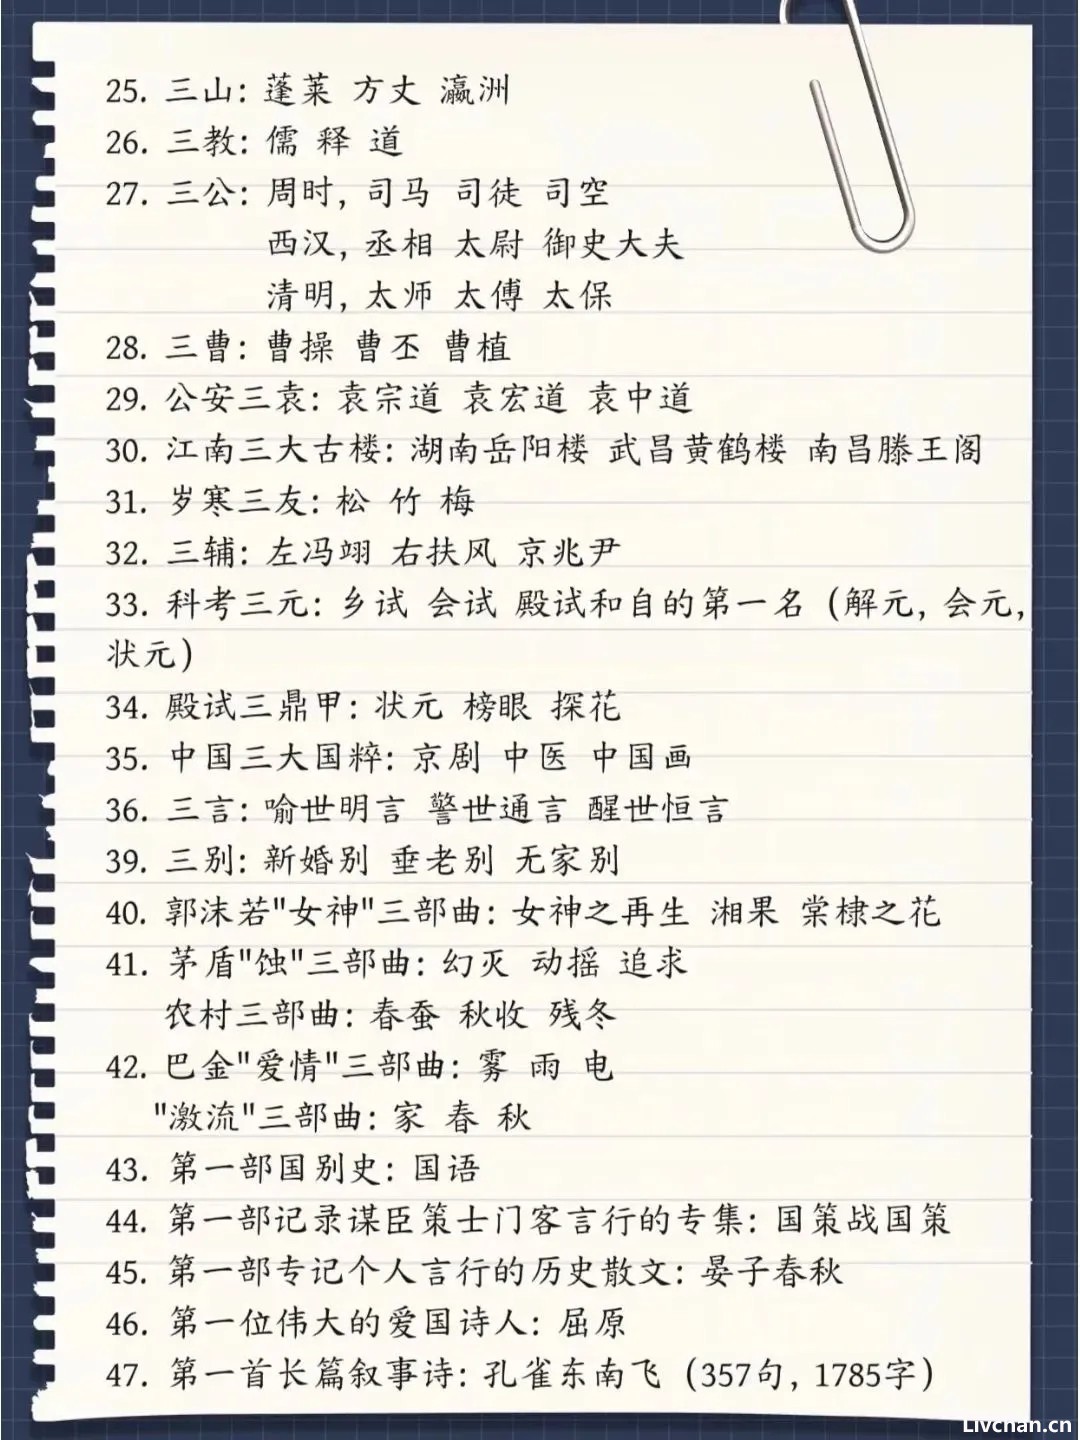 25. 三山: 蓬莱 方丈 瀛洲
26. 三教: 儒 释 道
27. 三公: 周时, 司马 司徒 司空
西汉, 丞相 太尉 御史大夫
清明, 太师 太傅 太保
28. 三曹: 曹操 曹丕 曹植
29. 公安三袁: 袁宗道 袁宏道 袁中道
30. 江南三大古楼: 湖南岳阳楼 武昌黄鹤楼 南昌滕王阁
31. 岁寒三友: 松 竹 梅
32. 三辅: 左冯翊 右扶风 京兆尹
33. 科考三元: 乡试 会试 殿试和自的第一名 (解元, 会元,
状元)
34. 殿试三鼎甲: 状元 榜眼 探花
35. 中国三大国粹: 京剧 中医 中国画
36. 三言: 喻世明言 警世通言 醒世恒言
39. 三别: 新婚别 垂老别 无家别
40. 郭沫若"女神"三部曲: 女神之再生 湘果 棠棣之花
41. 茅盾"蚀"三部曲: 幻灭 动摇 追求
农村三部曲: 春蚕 秋收 残冬
42. 巴金"爱情"三部曲: 雾 雨 电
"激流"三部曲: 家 春 秋
43. 第一部国别史: 国语
44. 第一部记录谋臣策士门客言行的专集: 国策战国策
45. 第一部专记个人言行的历史散文: 晏子春秋
46. 第一位伟大的爱国诗人: 屈原
47. 第一首长篇叙事诗: 孔雀东南飞 (357句, 1785字)
Livchan.cn